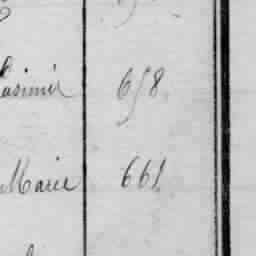 Casimir 658
Marie 661